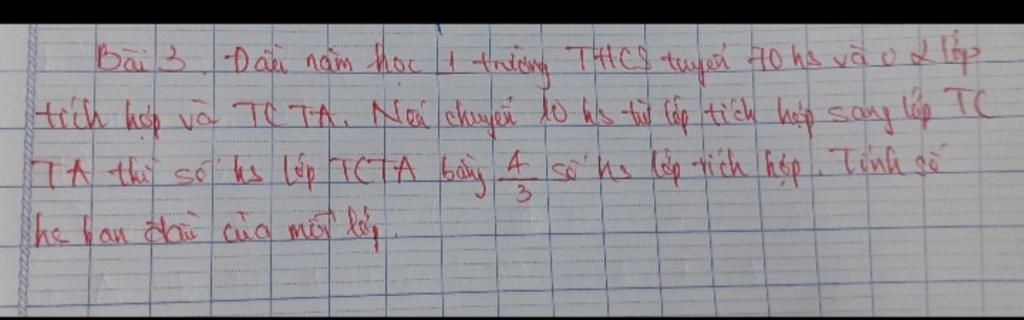 Bài 3. Đầu năm học 1 trường THCS tuyển 70 hs vào 2 lớp
tích hợp và TCTA. Nếu chuyển 10 hs từ lớp tích hợp sang lớp TC
TA thì số hs lớp TCTA bằng 4/3 số hs lớp tích hợp. Tính số
hs ban đầu của mỗi lớp.